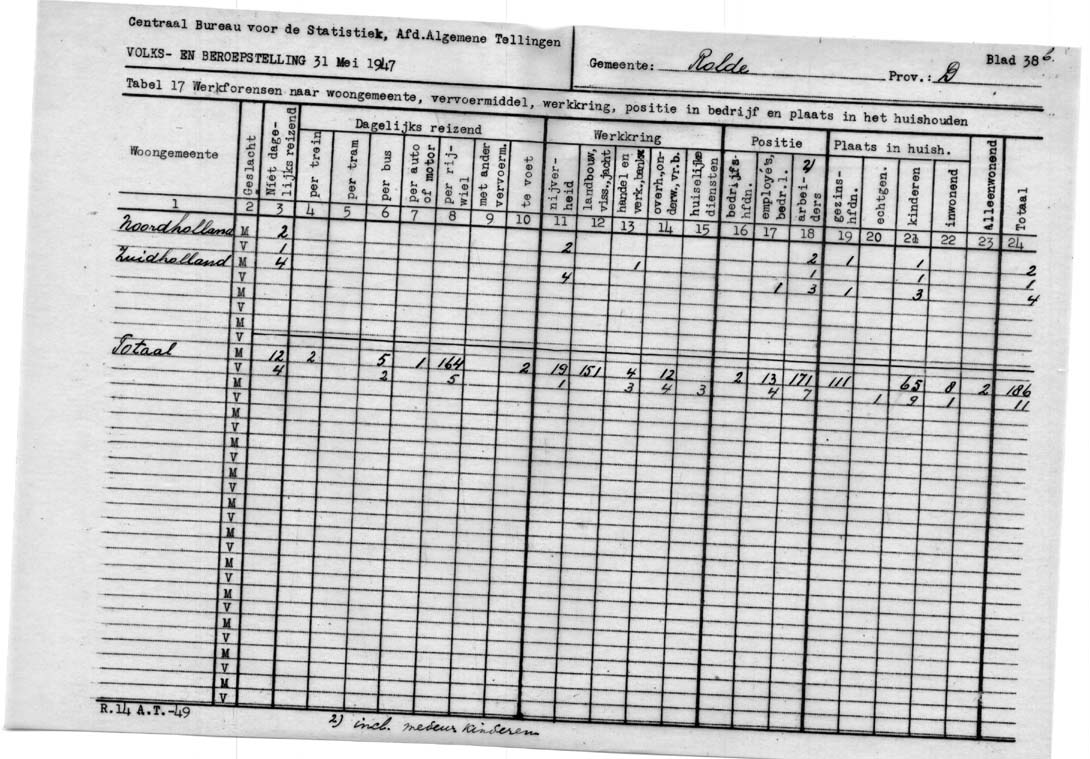 Centraal Bureau voor de Statistiek, Afd.Algemene Tellingen
VOLKS- EN BEROEPSTELLING 31 Mei 1947
Gemeente: Rolde Prov.: D Blad 38 b.
Tabel 17 Werkforensen naar woongemeente, vervoermiddel, werkkring, positie in bedrijf en plaats in het huishouden
Woongemeente
Geslacht
Niet dage-
lijks reizend
Dagelijks reizend
per trein
per tram
per bus
per auto
of motor
per rij-
wiel
met ander
vervoerm.
te voet
Werkkring
nijver-
heid
landbouw,
viss., jacht
handel en
verk., bankw
overh., on-
derw., vr.b.
huiselijke
diensten
Positie
bedrijfs-
hfdn.
employé's,
bedr.l.
2)
arbei-
ders
Plaats in huish.
gezins-
hfdn.
echtgen.
kinderen
inwonend
Alleenwonend
Totaal
1 2 3 4 5 6 7 8 9 10 11 12 13 14 15 16 17 18 19 20 21 22 23 24
Noordholland M 2 2 2 1 1 2
V 1 1 1 1 1
Zuidholland M 4 4 1 3 1 3 4
V
M
V
M
V
Totaal M 12 2 5 1 164 2 19 151 4 12 2 13 171 111 65 8 2 186
V 4 2 5 1 3 4 3 4 7 1 9 1 11
M
V
M
V
M
V
M
V
M
V
M
V
M
V
M
V
M
V
M
V
M
V
R.14 A.T.-49
2) incl. medewr kinderen